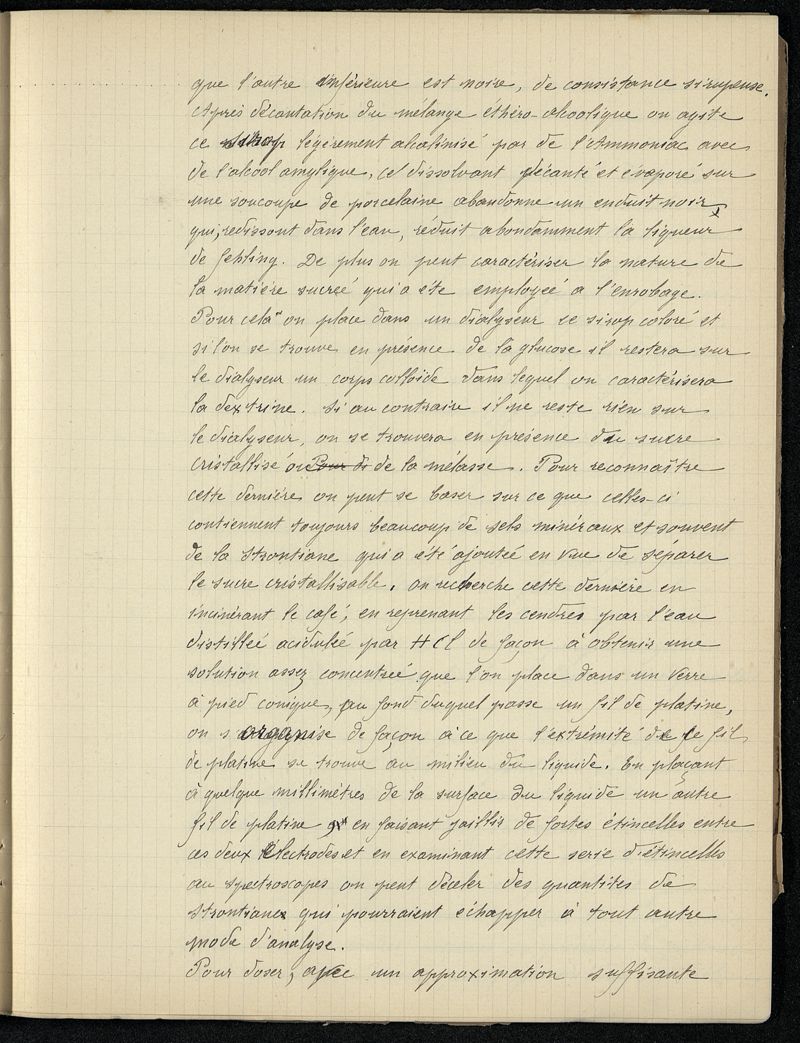 que l'autre inférieure est noire, de consistance sirupeuse.
Après décantation du mélange éthéro-alcoolique on agite
ce sirop légèrement alcalinisé par de l'Ammoniac avec
de l'alcool amylique, ce dissolvant décanté et évaporé sur
une soucoupe de porcelaine abandonne un enduit noir
qui, redissout dans l'eau, réduit abondamment la liqueur
de fehling. De plus on peut caractériser la nature de
la matière sucreé qui a été employeé a l'enrobage.
Pour celà on place dans un dialyseur se sirop coloré et
si l'on se trouve en présence de la glucose il restera sur
le dialyseur un corps colloïde dans lequel on caractérisera
la dextrine. Si au contraire il ne reste rien sur
le dialyseur, on se trouvera en présence du sucre
cristallisé ou de la mélasse. Pour reconnaître
cette dernière on peut se baser sur ce que celles-ci
contiennent toujours beaucoup de sels minéraux et souvent
de la Strontiane qui a été ajouteé en vue de séparer
le sucre cristallisable. On recherche cette dernière en
incinérant le café, en reprenant les cendres par l'eau
distilleé aciduleé par HCl de façon à obtenir une
solution assez concentreé que l'on place dans un verre
à pied conique, au fond duquel passe un fil de platine,
on s'organise de façon à ce que l'extrémité de ce fil
de platine se trouve au milieu du liquide. En plaçant
à quelque millimètres de la surface du liquide un autre
fil de platine en faisant jaillir de fortes étincelles entre
ces deux électrodes et en examinant cette serie d'étincelles
au spectroscopes on peut déceler des quantites de
strontiane qui pourraient échapper à tout autre
mode d'analyse.
Pour doser, avec un approximation suffisante